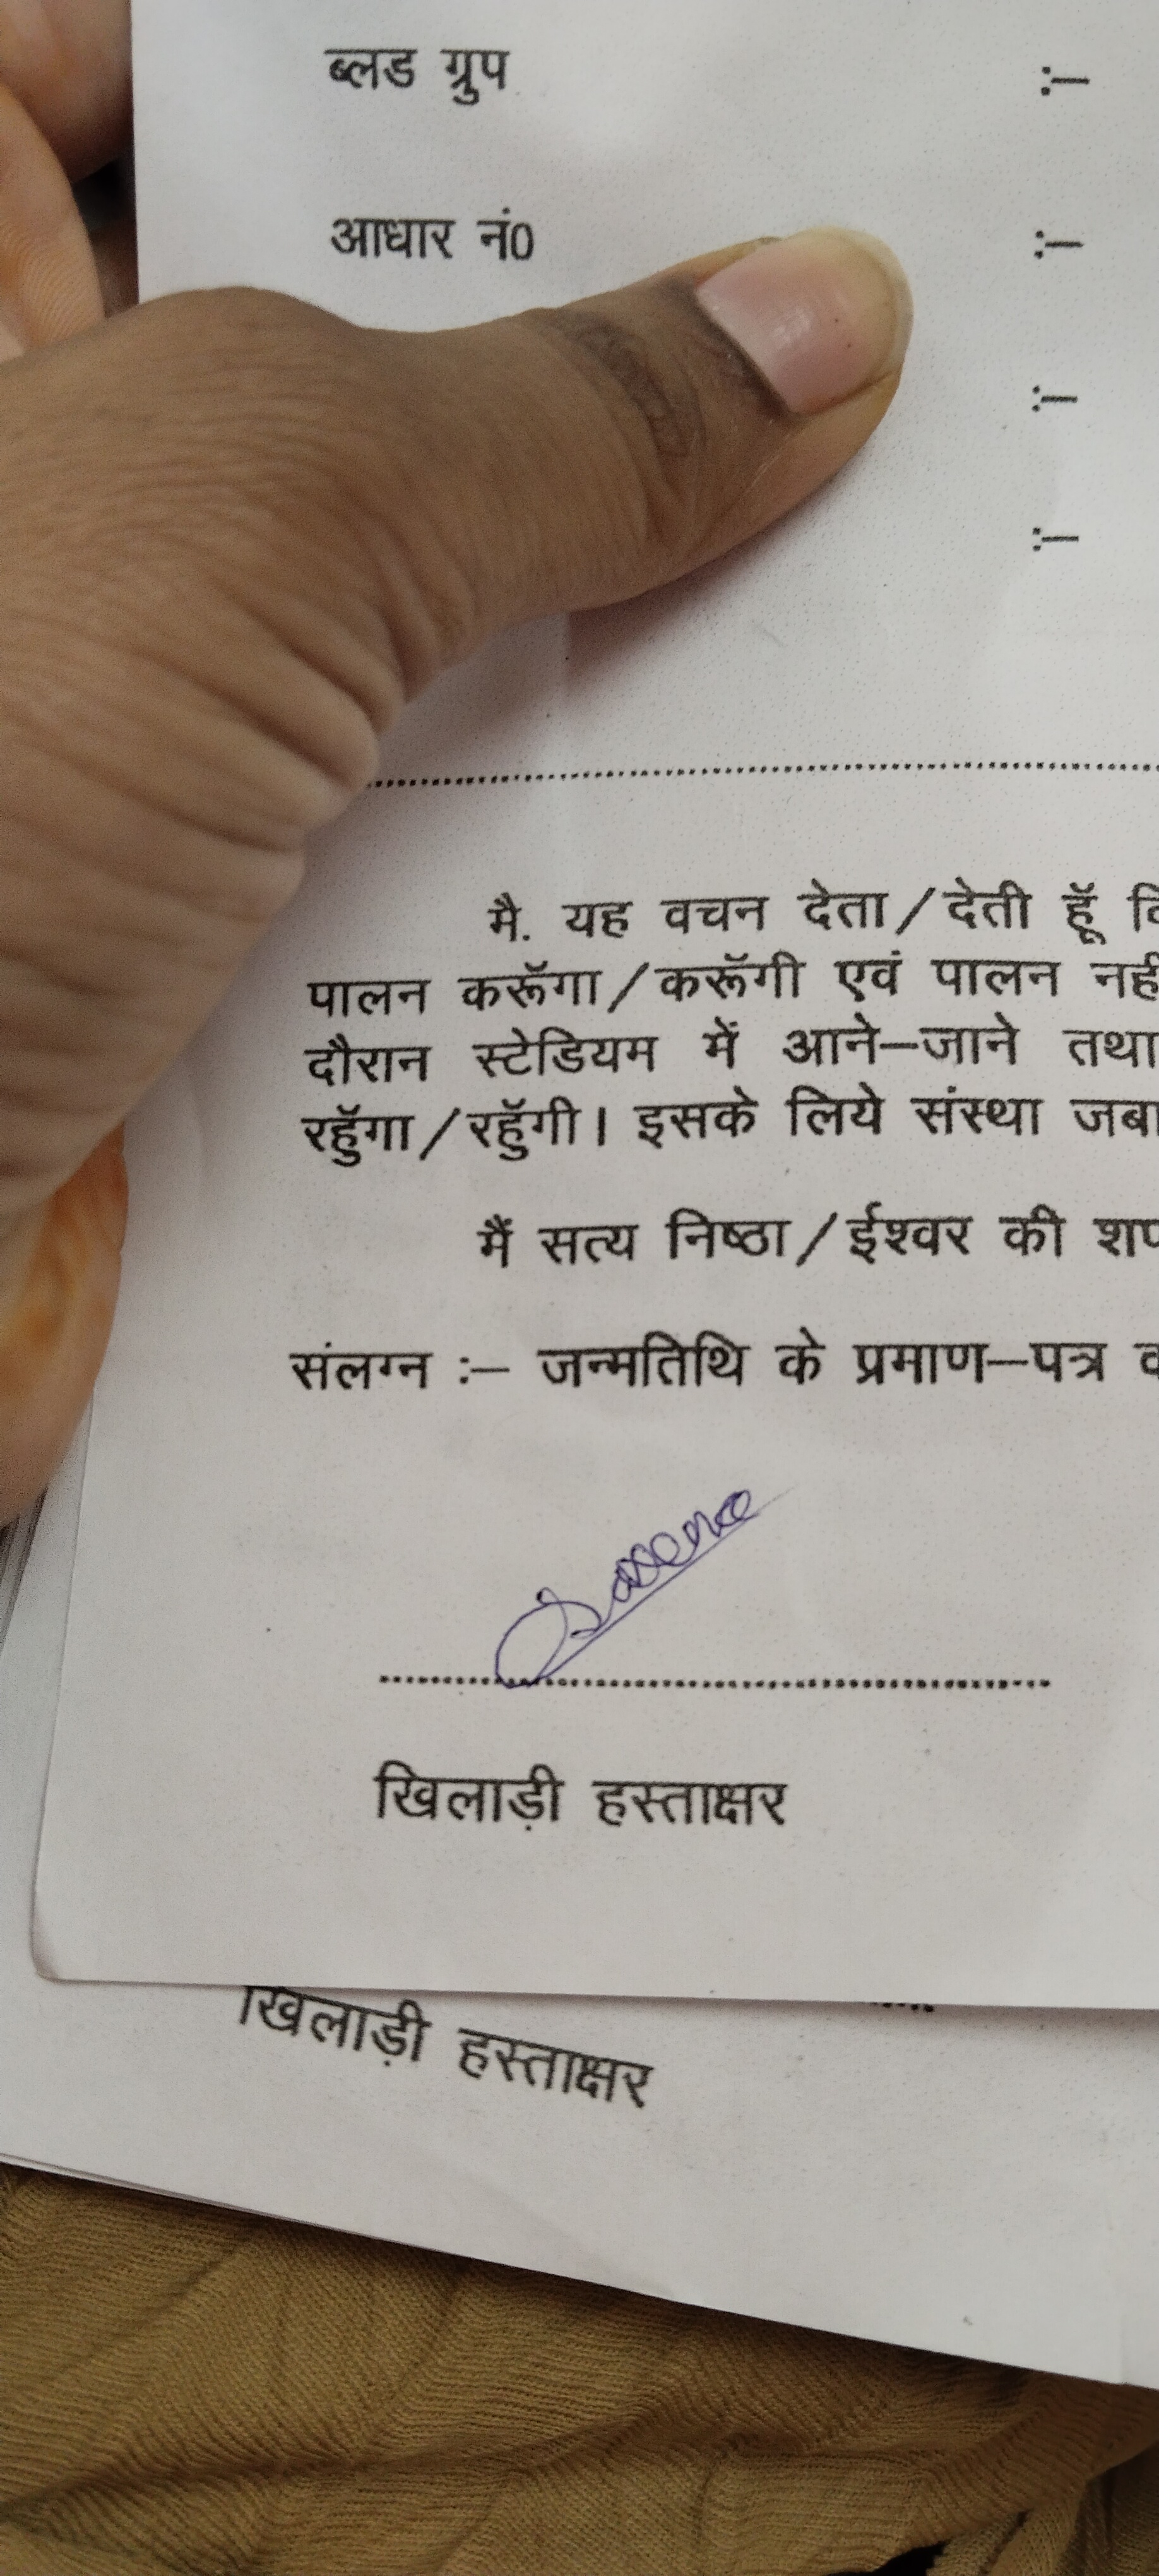 ब्लड ग्रुप :—
आधार नं0 :—
:—
:—
मै. यह वचन देता/देती हूॅ
पालन करूॅगा/करूॅगी एवं पालन नहीं
दौरान स्टेडियम में आने—जाने तथा
रहुॅगा/रहुॅगी। इसके लिये संस्था
मैं सत्य निष्ठा/ईश्वर की
संलग्न :— जन्मतिथि के प्रमाण—पत्र
खिलाड़ी हस्ताक्षर
खिलाड़ी हस्ताक्षर